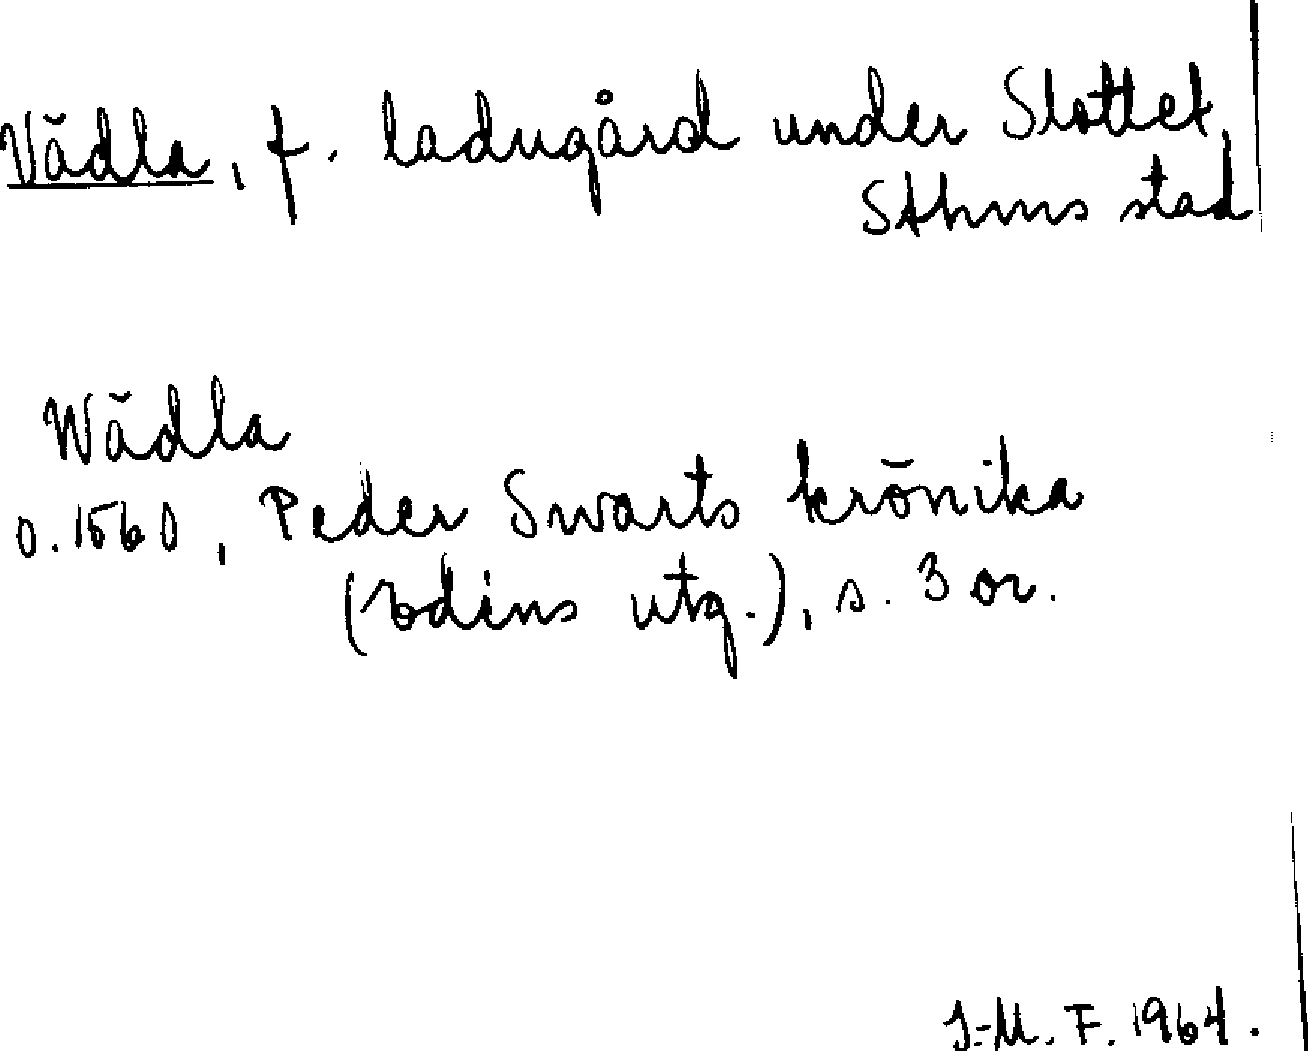 Vädla, f. ladugård under Slottet,
Sthms stad
Wädla
o. 1560, Peder Swarts krönika
(Edéns utg.), s. 3 or.
J-M. F. 1964.